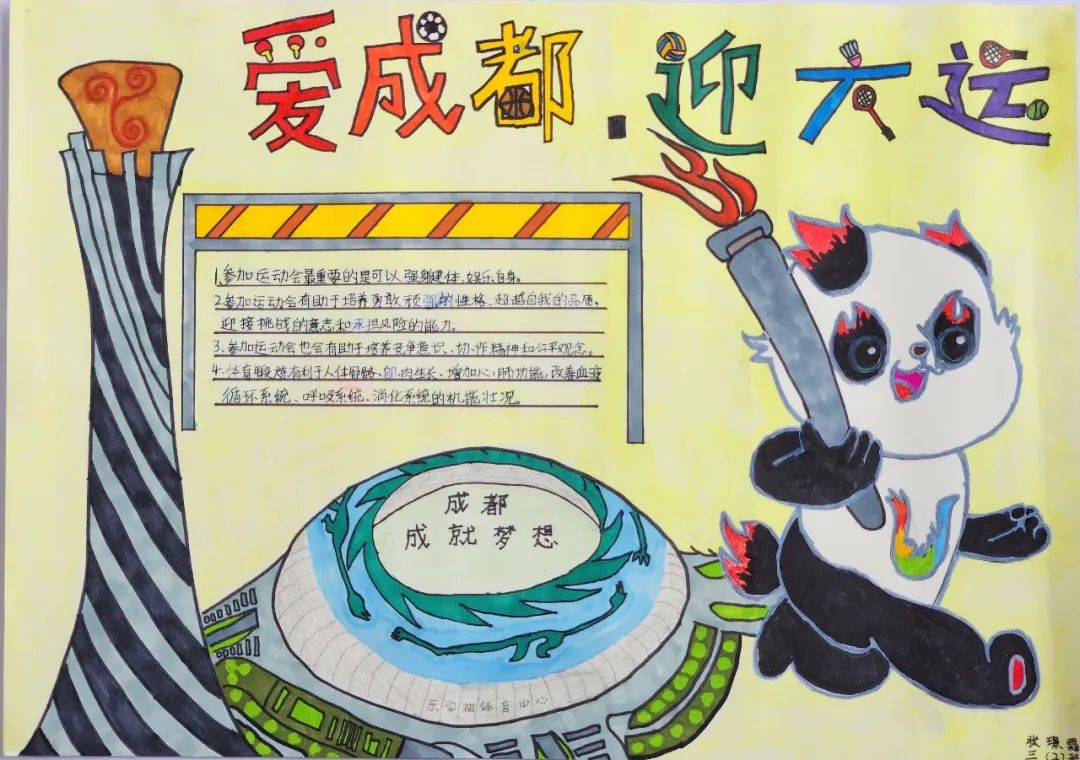 爱成都·迎大运
1、参加运动会最重要的是可以强健体、娱乐自身。
2、参加运动会有助于培养勇敢顽强的性格、超越自我的品质、
迎接挑战的意志和承担风险的能力。
3、参加运动会也会有助于培养竞争意识、协作精神和公平观念。
4、体育锻炼有利于人体骨骼、肌肉生长、增加心、肺功能,改善血液
循环系统、呼吸系统、消化系统的机能状况。
成都
成就梦想
东安湖体育中心
张璟
三(2)班